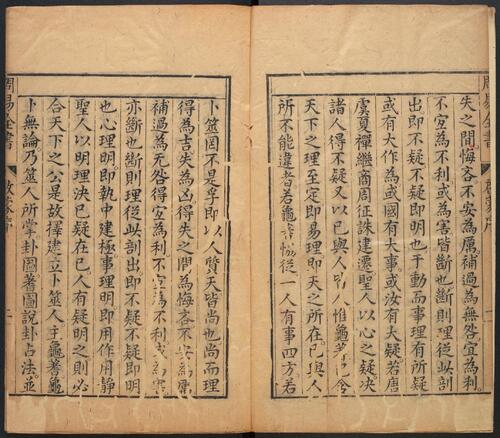 失之間悔吝不安為厲補過為無咎宜為利
不宜為不利或為害皆斷也斷則理從此剖
出即不疑不疑即明也于動而事理有所疑
或有大作為或國有大事或汝有大疑若唐
虞夏禪繼商周征誅建遷聖人以心之疑决
諸人得不疑又以已與人 人惟龜蓍已含
天下之理至定即易理即天之所在已與人
所不能違者若龜蓍恊從一人有事四方若
卜筮罔不是孚即以人質天皆尚也尚而理
得為吉失為凶得失之間為悔吝不安為厲
補過為无咎得宜為利不宜為不利或為害
亦斷也斷則理從此剖出即不疑不疑即明
也心理明即執中建極事理明即用作用靜
聖人以明理決已疑在已人有疑明之則必
合天下之公是故擇建立卜筮人主龜蓍龜
卜無論乃筮人所掌卦圖蓍圖說卦占法並
周易全書